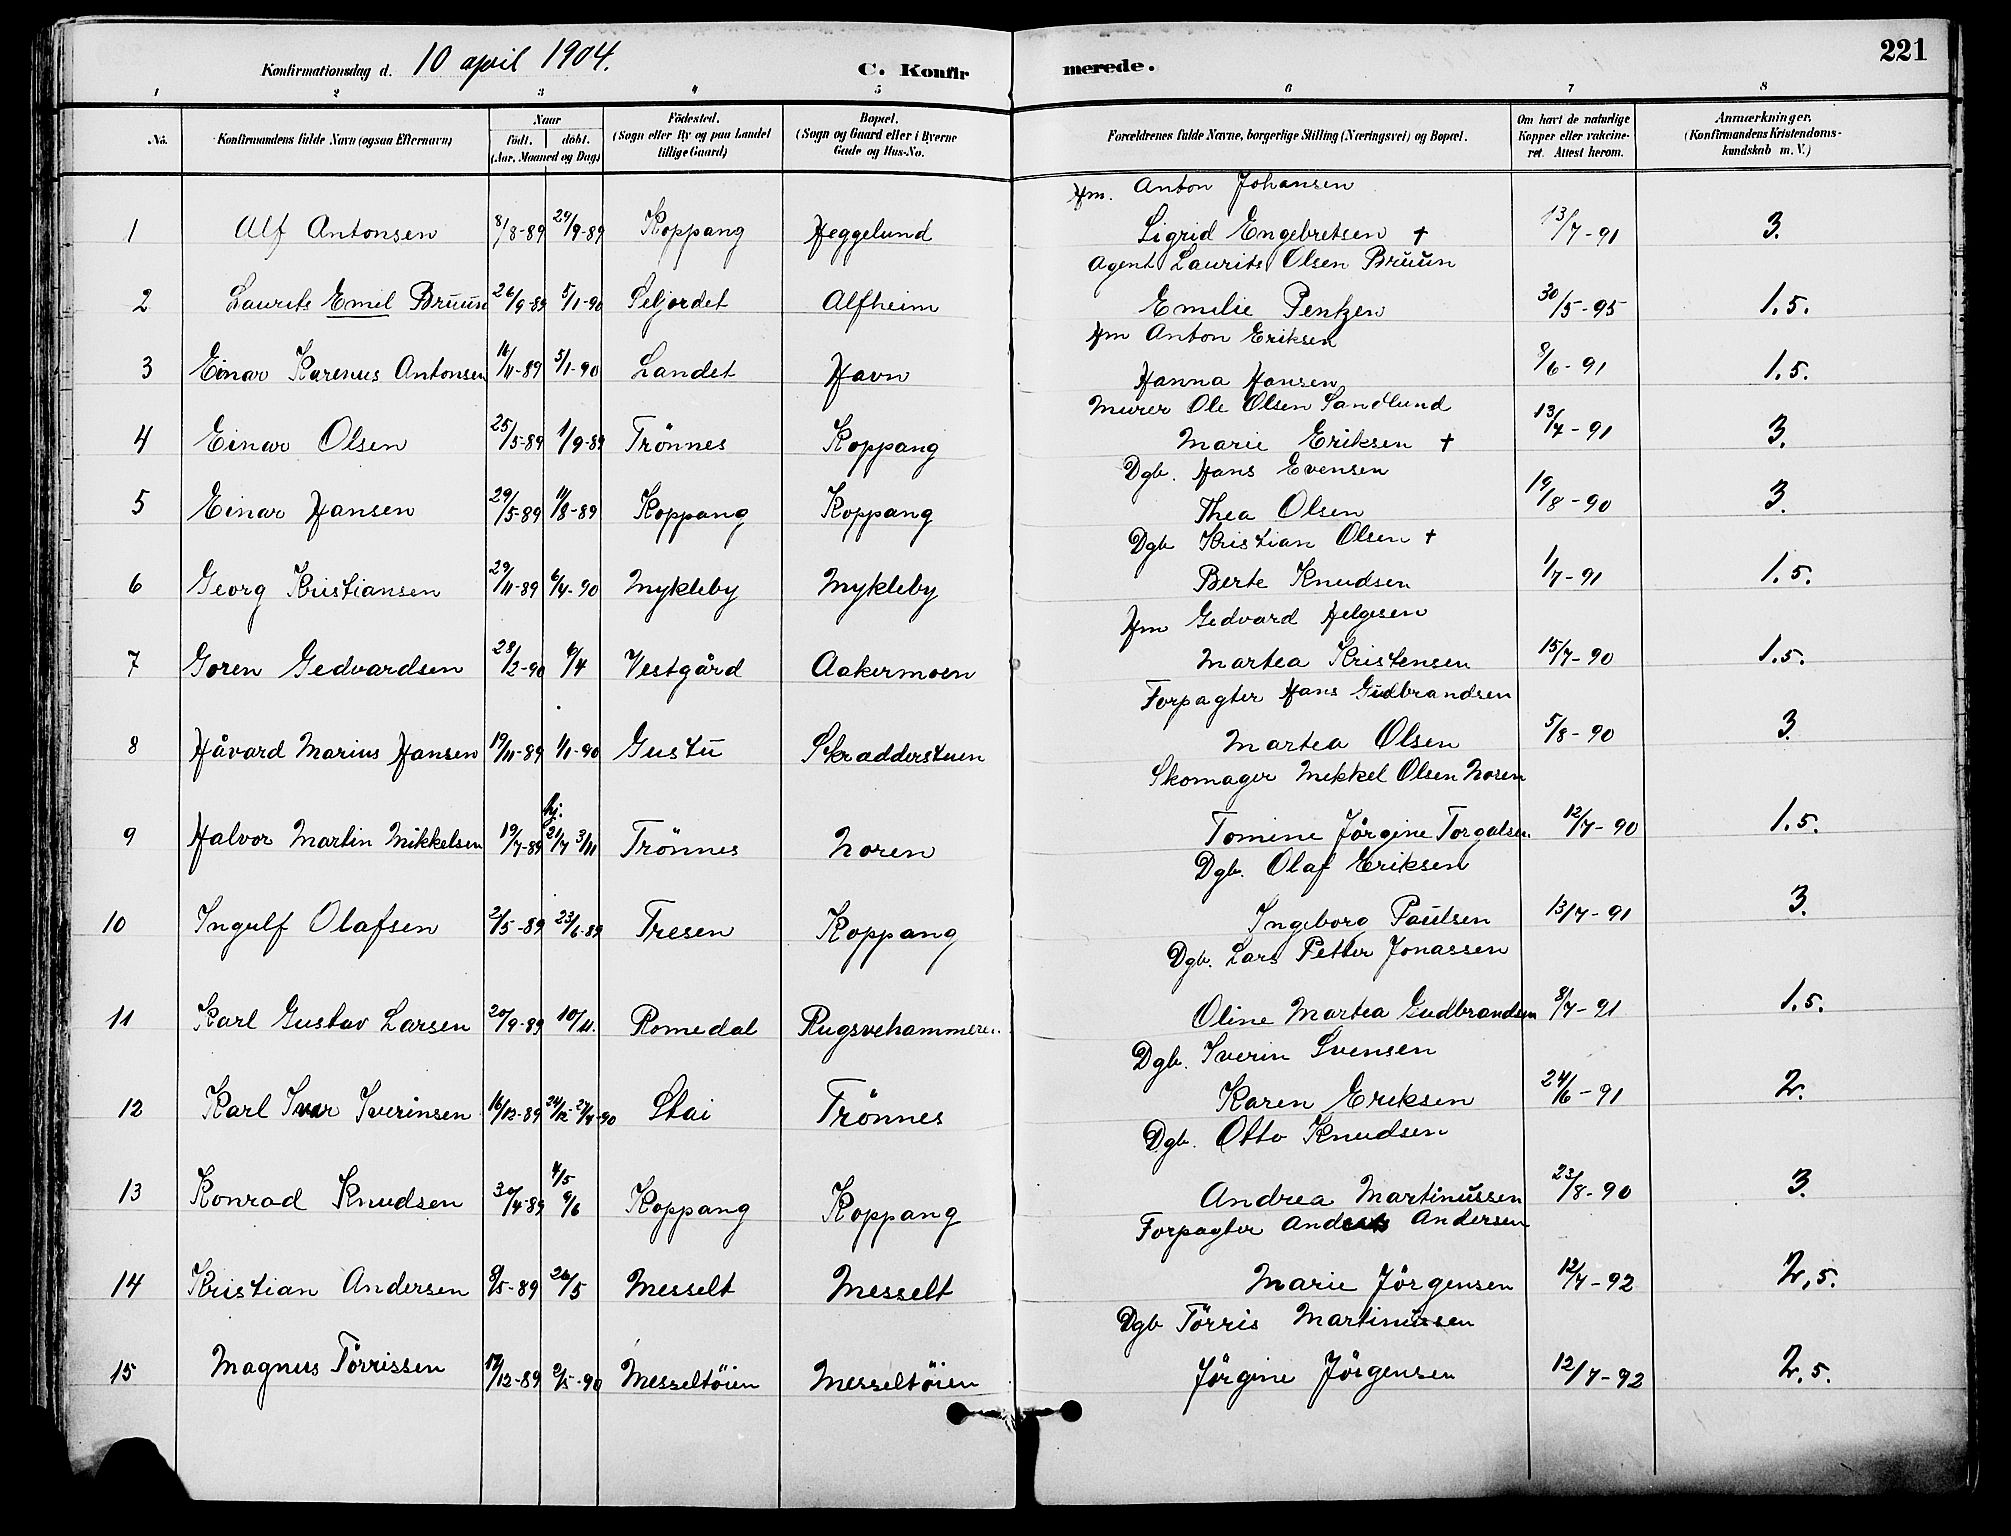 Konfirmationsdag d. 10 april 1904. C. Konfir merede. 221
1 2 3 4 5 6 7 8
No. Konfirmandens fulde Navn (ogsaa Efternavn) Naar født. døbt. (Aar, Maaned og Dag) Fødested. (Sogn eller By og paa Landet tillige Gaard) Bopæl. (Sogn og Gaard eller i Byerne Gade og Hus-No. Forældrenes fulde Navne, borgerlige Stilling (Næringsvei) og Bopæl. Om havt de naturlige Kopper eller vakcineret. Attest herom. Anmærkninger. (Konfirmandens Kristendomskundskab m. V.)
Hm. Anton Johansen
1 Alf Antonsen 8/8-89 29/9-89 Koppang Heggelund Sigrid Engebretsen † 13/7-91 3.
Agent Laurits Olsen Bruun
2 Laurits Emil Bruun 26/9-89 5/1-90 Seljordet Alfheim Emilie Pentzen 30/5-95 1.5.
Hm Anton Eriksen
3 Einar Karenus Antonsen 16/11-89 5/1-90 Landet Havn Hanna Hansen 9/6-91 1.5.
Murer Ole Olsen Sandlund
4 Einar Olsen 25/5-89 1/9-89 Trönnes Koppang Marie Eriksen † 13/7-91 3.
Dgb. Hans Evensen
5 Einar Hansen 29/5-89 11/8-89 Koppang Koppang Thea Olsen 19/8-90 3.
Dgb Kristian Olsen †
6 Georg Kristiansen 29/11-89 6/4-90 Mykleby Mykleby Berte Knudsen 1/7-91 1.5.
Hm Gedvard Helgesen
7 Goren Gedvardsen 28/2-90 6/4 Vestgård Aakermoen Martea Kristensen 15/7-90 1.5.
Forpagter Hans Gudbrandsen
8 Håvard Marius Hansen 19/11-89 1/1-90 Gustu Skradderstuen Martea Olsen 5/8-90 3.
Skomager Mekkel Olsen Noren
9 Halvor Martin Mikkelsen 19/7-89 hj. 21/7 3/11 Trönnes Noren Tomine Jörgine Torgalsen 12/7-90 1.5.
Dgb. Olaf Eriksen
10 Ingulf Olafsen 2/5-89 23/6-89 Tresen Koppang Ingeborg Paulsen 13/7-91 3.
Dgb. Lars Petter Jonassen
11 Karl Gustav Larsen 20/9-89 10/11. Romedal Rugsvehammeren Oline Martea Gudbrandsen 8/7-91 1.5.
Dgb. Iverin Svensen
12 Karl Ivar Iverinsen 16/12-89 24/12- 27/4-90 Stai Trönnes Karen Eriksen 24/6-91 2.
Dgb. Otto Knudsen
13 Konrad Knudsen 30/4-89 4/5 9/6 Koppang Koppang Andrea Martinussen 23/8-90 3.
Forpagter Andersen
14 Kristian Andersen 9/5-89 26/5 Messelt Messelt Marie Jörgensen 12/7-92 2,5.
Dgb Törris Martinussen
15 Magnus Törrissen 17/12-89 2/5-90 Messeltöien Messeltöien Jörgine Jörgensen 12/7-92 2.5.